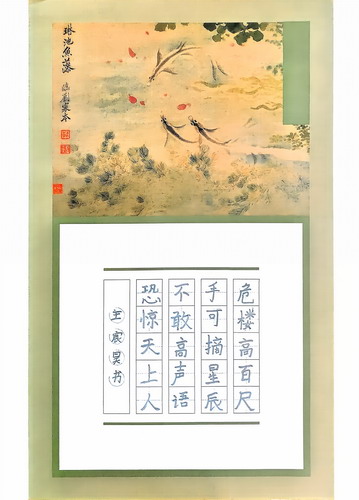 琳池魚藻
危楼高百尺
手可摘星辰
不敢高声语
恐惊天上人
王宸昊书